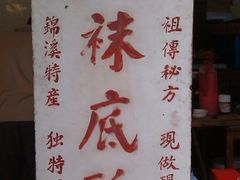 祖傳秘方 現做現
袜底酥
錦溪特産 独特